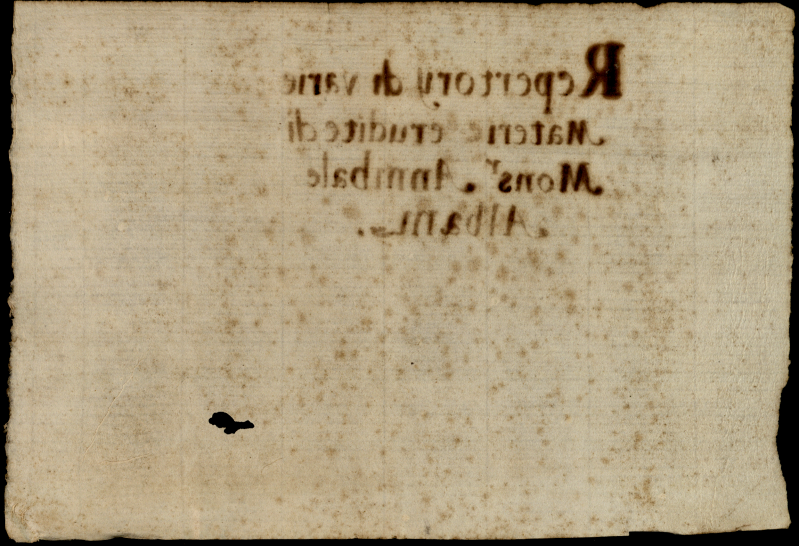 Repertory di varie
Materie erudite di
Monsr. Annibale
Albani.